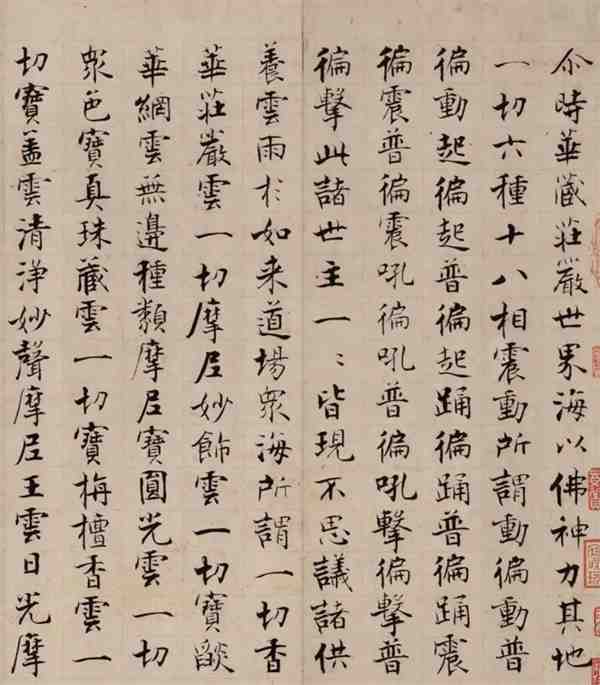 尒時華藏莊嚴世界海以佛神力其地
一切六種十八相震動所謂動徧動普
徧動起徧起普徧起踊徧踊普徧踊震
徧震普徧震吼徧吼普徧吼擊徧擊普
徧擊此諸世主一〻皆現不思議諸供
養雲雨於如来道場衆海所謂一切香
華莊嚴雲一切摩尼妙飾雲一切寶燄
華網雲無邊種類摩尼寶圓光雲一切
衆色寶真珠藏雲一切寶栴檀香雲一
切寶盖雲清淨妙聲摩尼王雲日光摩